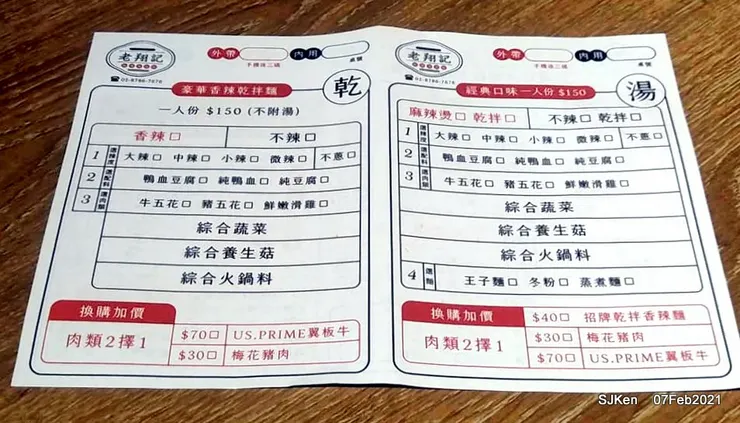 老翔記
外帶
手機後三碼
內用
桌號
豪華香辣乾拌麵
乾
一人份 $150 (不附湯)
香辣□ 不辣□
1 選辣度 大辣□ 中辣□ 小辣□ 微辣□ 不蔥□
2 選配料 鴨血豆腐□ 純鴨血□ 純豆腐□
3 選肉類 牛五花□ 豬五花□ 鮮嫩滑雞□
綜合蔬菜
綜合養生菇
綜合火鍋料
換購加價
肉類2擇1
$70□ US.PRIME翼板牛
$30□ 梅花豬肉
老翔記
外帶
手機後三碼
內用
桌號
經典口味一人份 $150
湯
麻辣燙□ 乾拌□ 不辣□ 乾拌□
1 選辣度 大辣□ 中辣□ 小辣□ 微辣□ 不蔥□
2 選配料 鴨血豆腐□ 純鴨血□ 純豆腐□
3 選肉類 牛五花□ 豬五花□ 鮮嫩滑雞□
綜合蔬菜
綜合養生菇
綜合火鍋料
4 選麵 王子麵□ 冬粉□ 蒸煮麵□
換購加價
肉類2擇1
$40□ 招牌乾拌香辣麵
$30□ 梅花豬肉
$70□ US.PRIME翼板牛
SJKen 07Feb2021